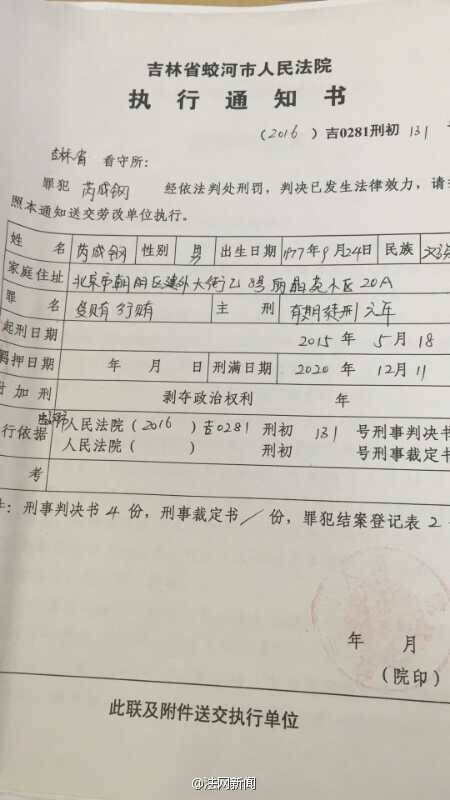 吉林省蛟河市人民法院
执行通知书
(2016)吉0281刑初 131
吉林省 看守所:
罪犯 芮成钢 经依法判处刑罚,判决已发生法律效力,请
照本通知送交劳改单位执行。
姓名 芮成钢 性别 男 出生日期 1977年9月24日 民族 汉族
家庭住址 北京市朝阳区建外大街乙8号丽晶苑小区20A
罪名 受贿 行贿 主刑 有期徒刑 六年
起刑日期 2015年5月18
羁押日期 年 月 日 刑满日期 2020年12月11
附加刑 剥夺政治权利 年
行依据 人民法院(2016)吉0281刑初 131 号刑事判决书
人民法院( ) 刑初 号刑事裁定书
考
件:刑事判决书4份,刑事裁定书/份,罪犯结案登记表2
年 月
(院印)
此联及附件送交执行单位
@法网新闻